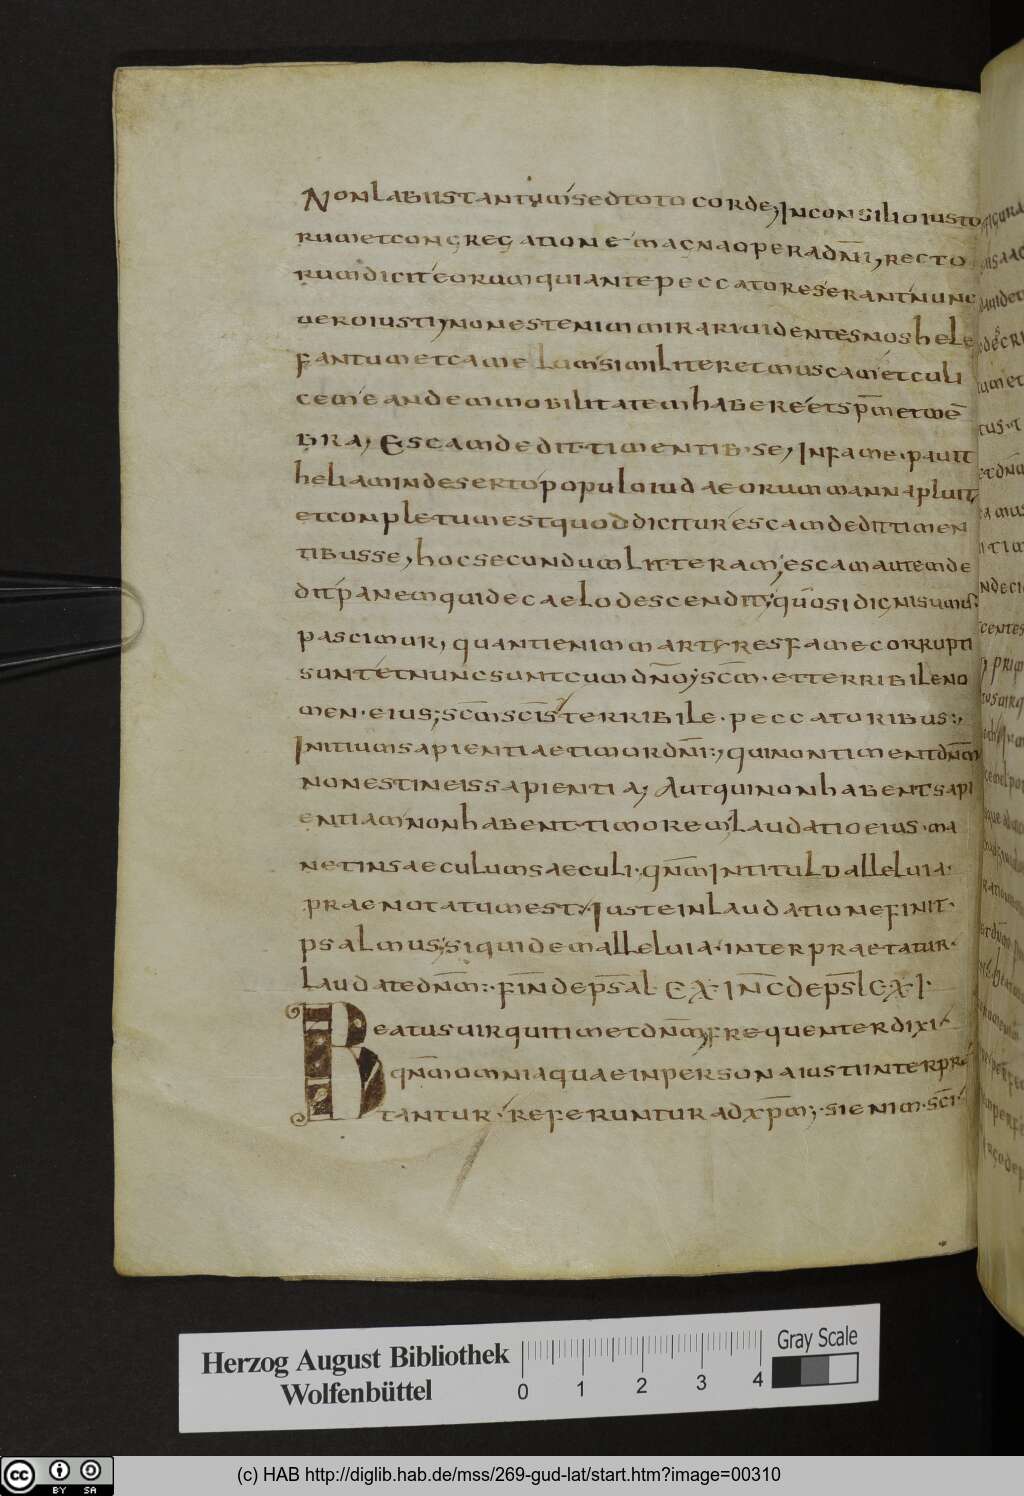 Non labiis tantum sed toto corde, In consilio iusto
rum et congregatione magna opera dn̅i, recto
rum dicit eorum qui ante peccatores erant nunc
uero iusti, non est enim mirari uidentes nos hele
fantum et camellum similiter et muscam et culi
cem eandem mobilitatem habere et sp̅m et me̅
bra, Escam dedit timentib· se, In fame· pauit
heliam in deserto populo iudaeorum manna pluit,
et conpletum est quod dicitur escam dedit timen
tibus se, hoc secundum litteram, escam autem de
dit panem qui de caelo descendit, quo si digni sumus
pascimur, quanti enim martyres fame corrupti
sunt et nunc sunt cum dn̅o, sc̅m· et terribile no
men· eius; sc̅m sc̅is terribile· peccatoribus:,
Initium sapientiae timor dn̅i:, qui non timent dn̅m
non est in eis sapientia; Aut qui non habent sapi
entiam non habent timorem, laudatio eius· ma
net in saeculum saeculi· qn̅m In titulo alleluia·
praenotatum est· Iuste in laudatione finit·
psalmus, siquidem alleluia· interpraetatur·
laudate dn̅m:· fin̅ de ps̅al· CX· INC̅ de ps̅l CXI·
Beatus uir qui timet dn̅m, frequenter dixi·
qn̅m omnia quae in persona iusti interprae
tantur· referuntur ad xp̅m;· si enim· sc̅i·
Herzog August Bibliothek
Wolfenbüttel
0 1 2 3 4
Gray Scale
cc BY SA
(c) HAB http://diglib.hab.de/mss/269-gud-lat/start.htm?image=00310